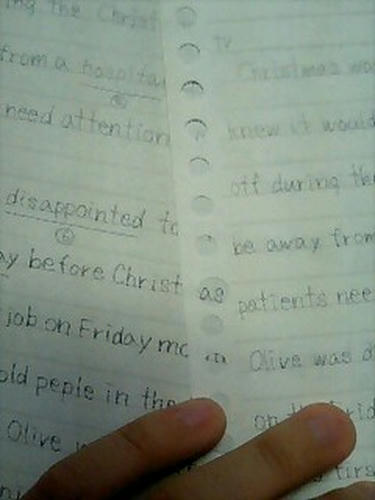 ing the Christ
from a hospita
need attention
disappointed to
ay before Christ
job on Friday mo
old peple in the
Olive
IV
Christmas wo
knew it would
off during the
be away from
as
patients nee
Olive was d
on the Frid
firs